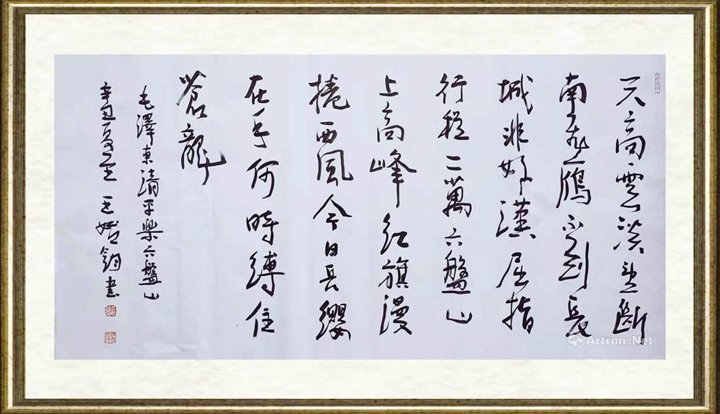 天高雲淡望斷
南飛鴈不到長
城非好漢屈指
行程二萬六盤山
上高峰紅旗漫
捲西風今日長纓
在手何時縛住
蒼龍
毛澤東清平樂六盤山
辛丑夏至王鈞書
Artron.Net